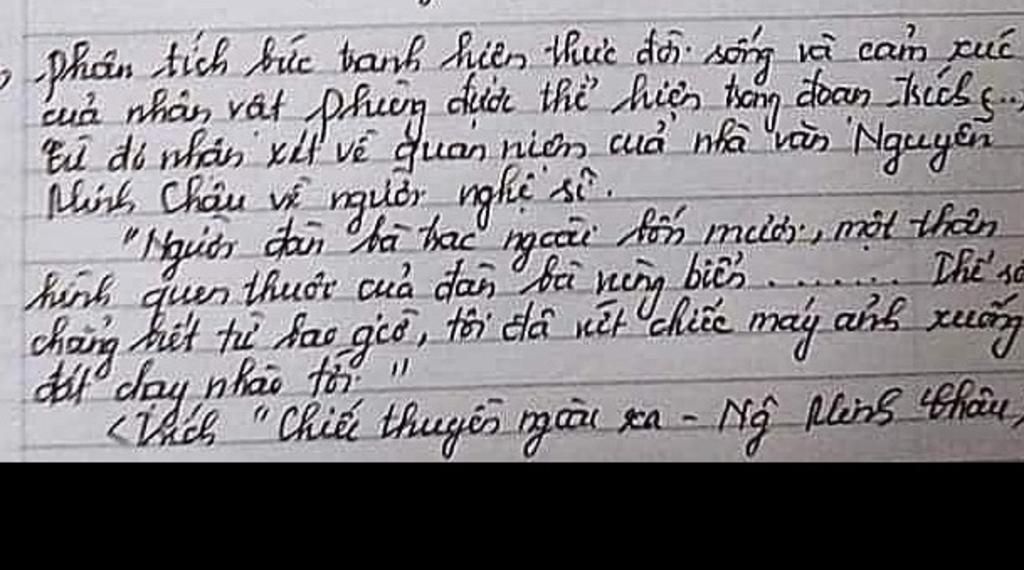 phân tích bức tranh hiện thực đời sống và cảm xúc
của nhân vật Phùng được thể hiện trong đoan trích (...)
từ đó nhân xét về quan niệm của nhà văn Nguyễn
Minh Châu về người nghệ sĩ.
"Người đàn bà trạc ngoài bốn mươi, một thân
hình quen thuộc của đàn bà vùng biển ....... Thế
chẳng biết từ bao giờ, tôi đã vứt chiếc máy ảnh xuống
đất chạy nhào tới."
(Trích "Chiếc thuyền ngoài xa - Ng Minh Châu)